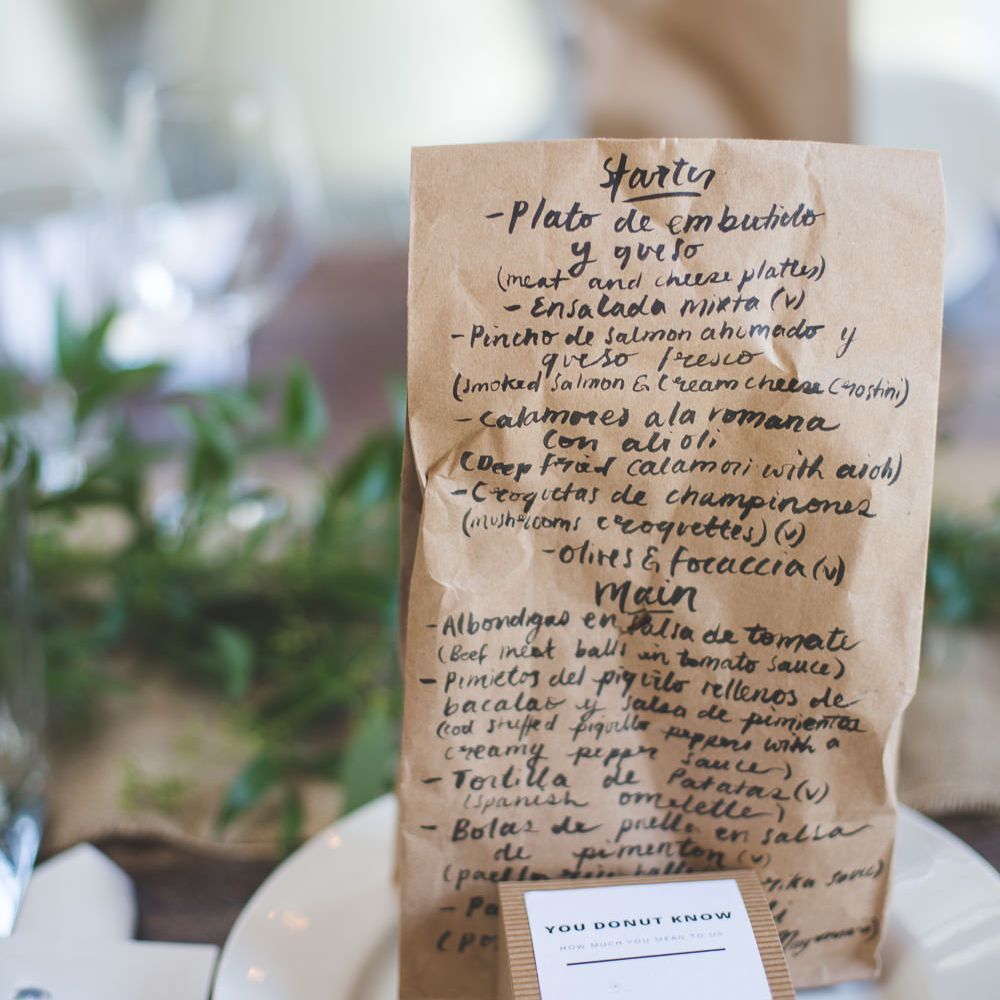 Starters
- Plato de embutido
y queso
(meat and cheese platter)
- Ensalada mixta (v)
- Pincho de salmon ahumado y
queso fresco
(smoked salmon & cream cheese crostini)
- calamares a la romana
con ali oli
(Deep fried calamari with aioli)
- Croquetas de champinones
(mushrooms croquettes) (v)
- olives & focaccia (v)
Main
- Albondigas en salsa de tomate
(Beef meat balls in tomato sauce)
- Pimietos del piquillo rellenos de
bacalao y salsa de pimientos
(cod stuffed piquillo peppers with a
creamy pepper sauce)
- Tortilla de Patatas (v)
(spanish omelette)
- Bolas de paella en salsa
de pimenton (v)
(paella rice balls
- Pa
(Po
YOU DONUT KNOW
HOW MUCH YOU MEAN TO US